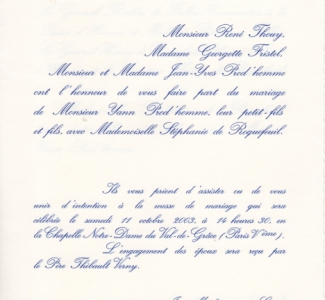 Monsieur René Thouy,
Madame Georgette Fristel,
Monsieur et Madame Jean-Yves Prod'homme
ont l'honneur de vous faire part du mariage
de Monsieur Yann Prod'homme, leur petit-fils
et fils, avec Mademoiselle Stéphanie de Roquefeuil.
Ils vous prient d'assister ou de vous
unir d'intention à la messe de mariage qui sera
célébrée le samedi 11 octobre 2003, à 14 heures 30, en
la Chapelle Notre-Dame du Val-de-Grâce (Paris Vème).
L'engagement des époux sera reçu par
le Père Thibault Verny.